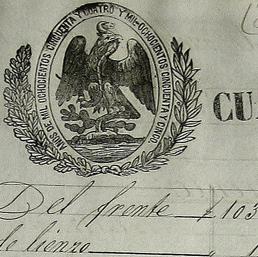 AÑOS DE MIL OCHOCIENTOS CINCUENTA Y CUATRO Y MIL OCHOCIENTOS CINCUENTA Y CINCO.
CU
Del frente £ 103
de lienzo